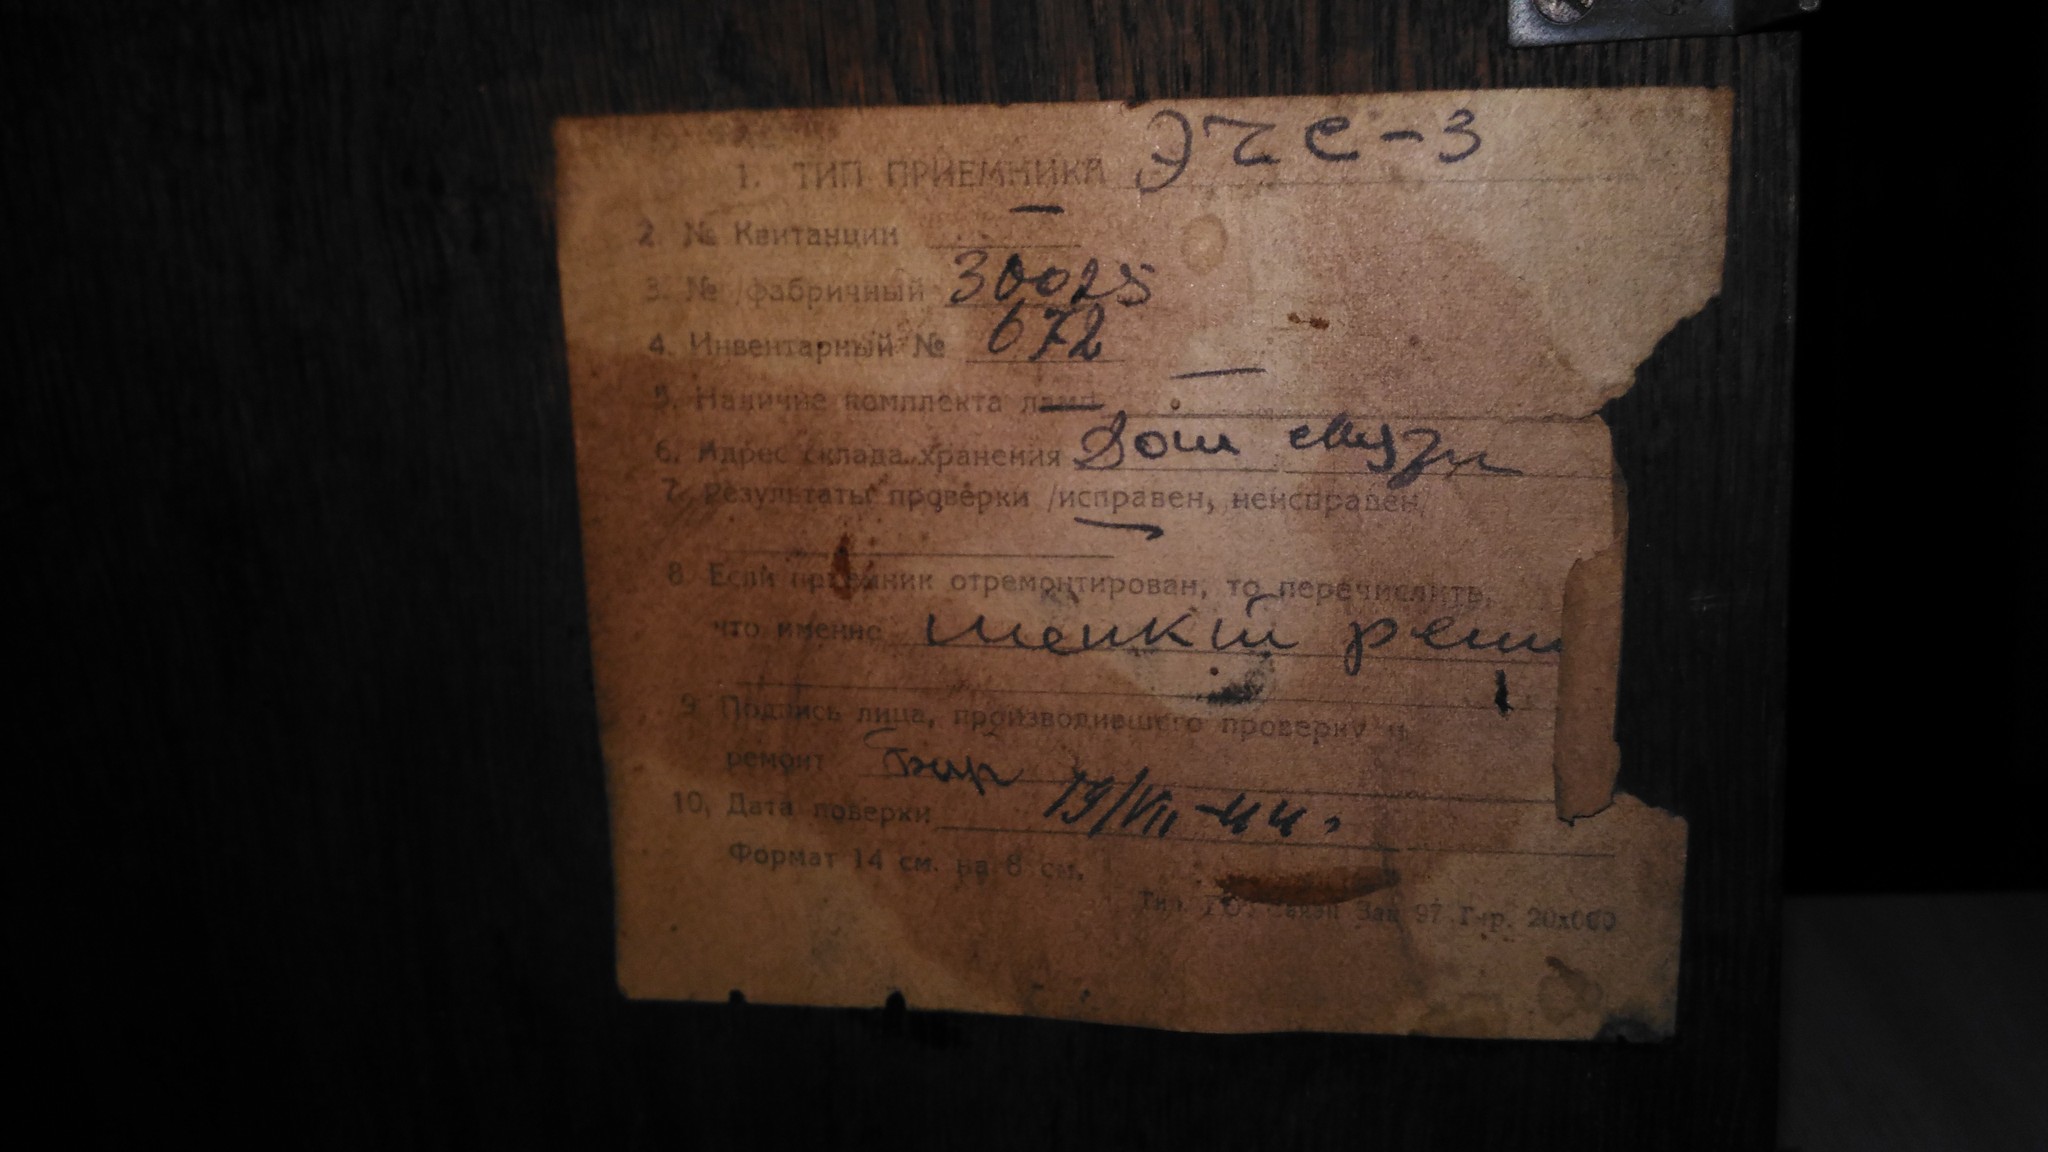 1. ТИП ПРИЕМНИКА ЭЧС-3
2 № Квитанции —
3. № /фабричный 30025
4. Инвентарный № 672
5. Наличие комплекта ламп —
6. Адрес склада хранения Дом связи
7. Результаты проверки /исправен, неисправен/
8 Если приемник отремонтирован, то перечислить,
что именно мелкий рем
9 Подпись лица, производившего проверку и
ремонт
10, Дата поверки 19/VII-44.
Формат 14 см. на 8 см.
Зак 97 Тир. 20х000